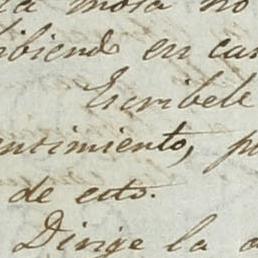 la mora no
ibiendo en ca
Escribele
ensimiento, p
de esto.
Dirige la a